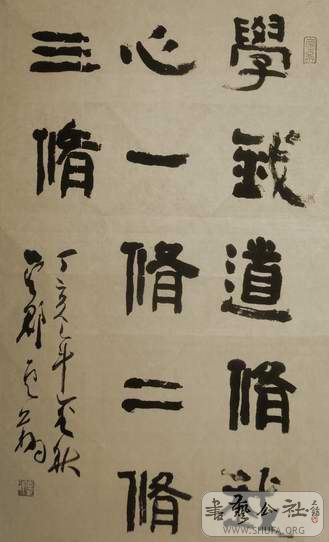 學我道脩我
心一脩二脩
三脩
丁亥年金秋
書藝公社
WWW.SHUFA.ORG